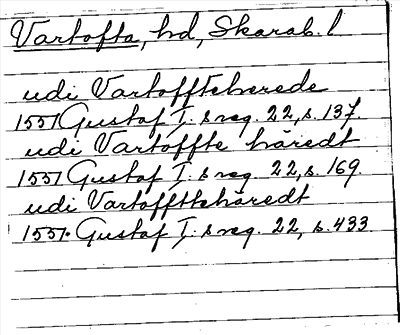 Vartofta, hd, Skarab. l
udi Vartoffteherede
1551 Gustaf I:s reg. 22, s. 137.
udi Vartoffte häredt
1551 Gustaf I:s reg. 22, s. 169
udi Vartofftehäredt
1551. Gustaf I:s reg. 22, s. 433